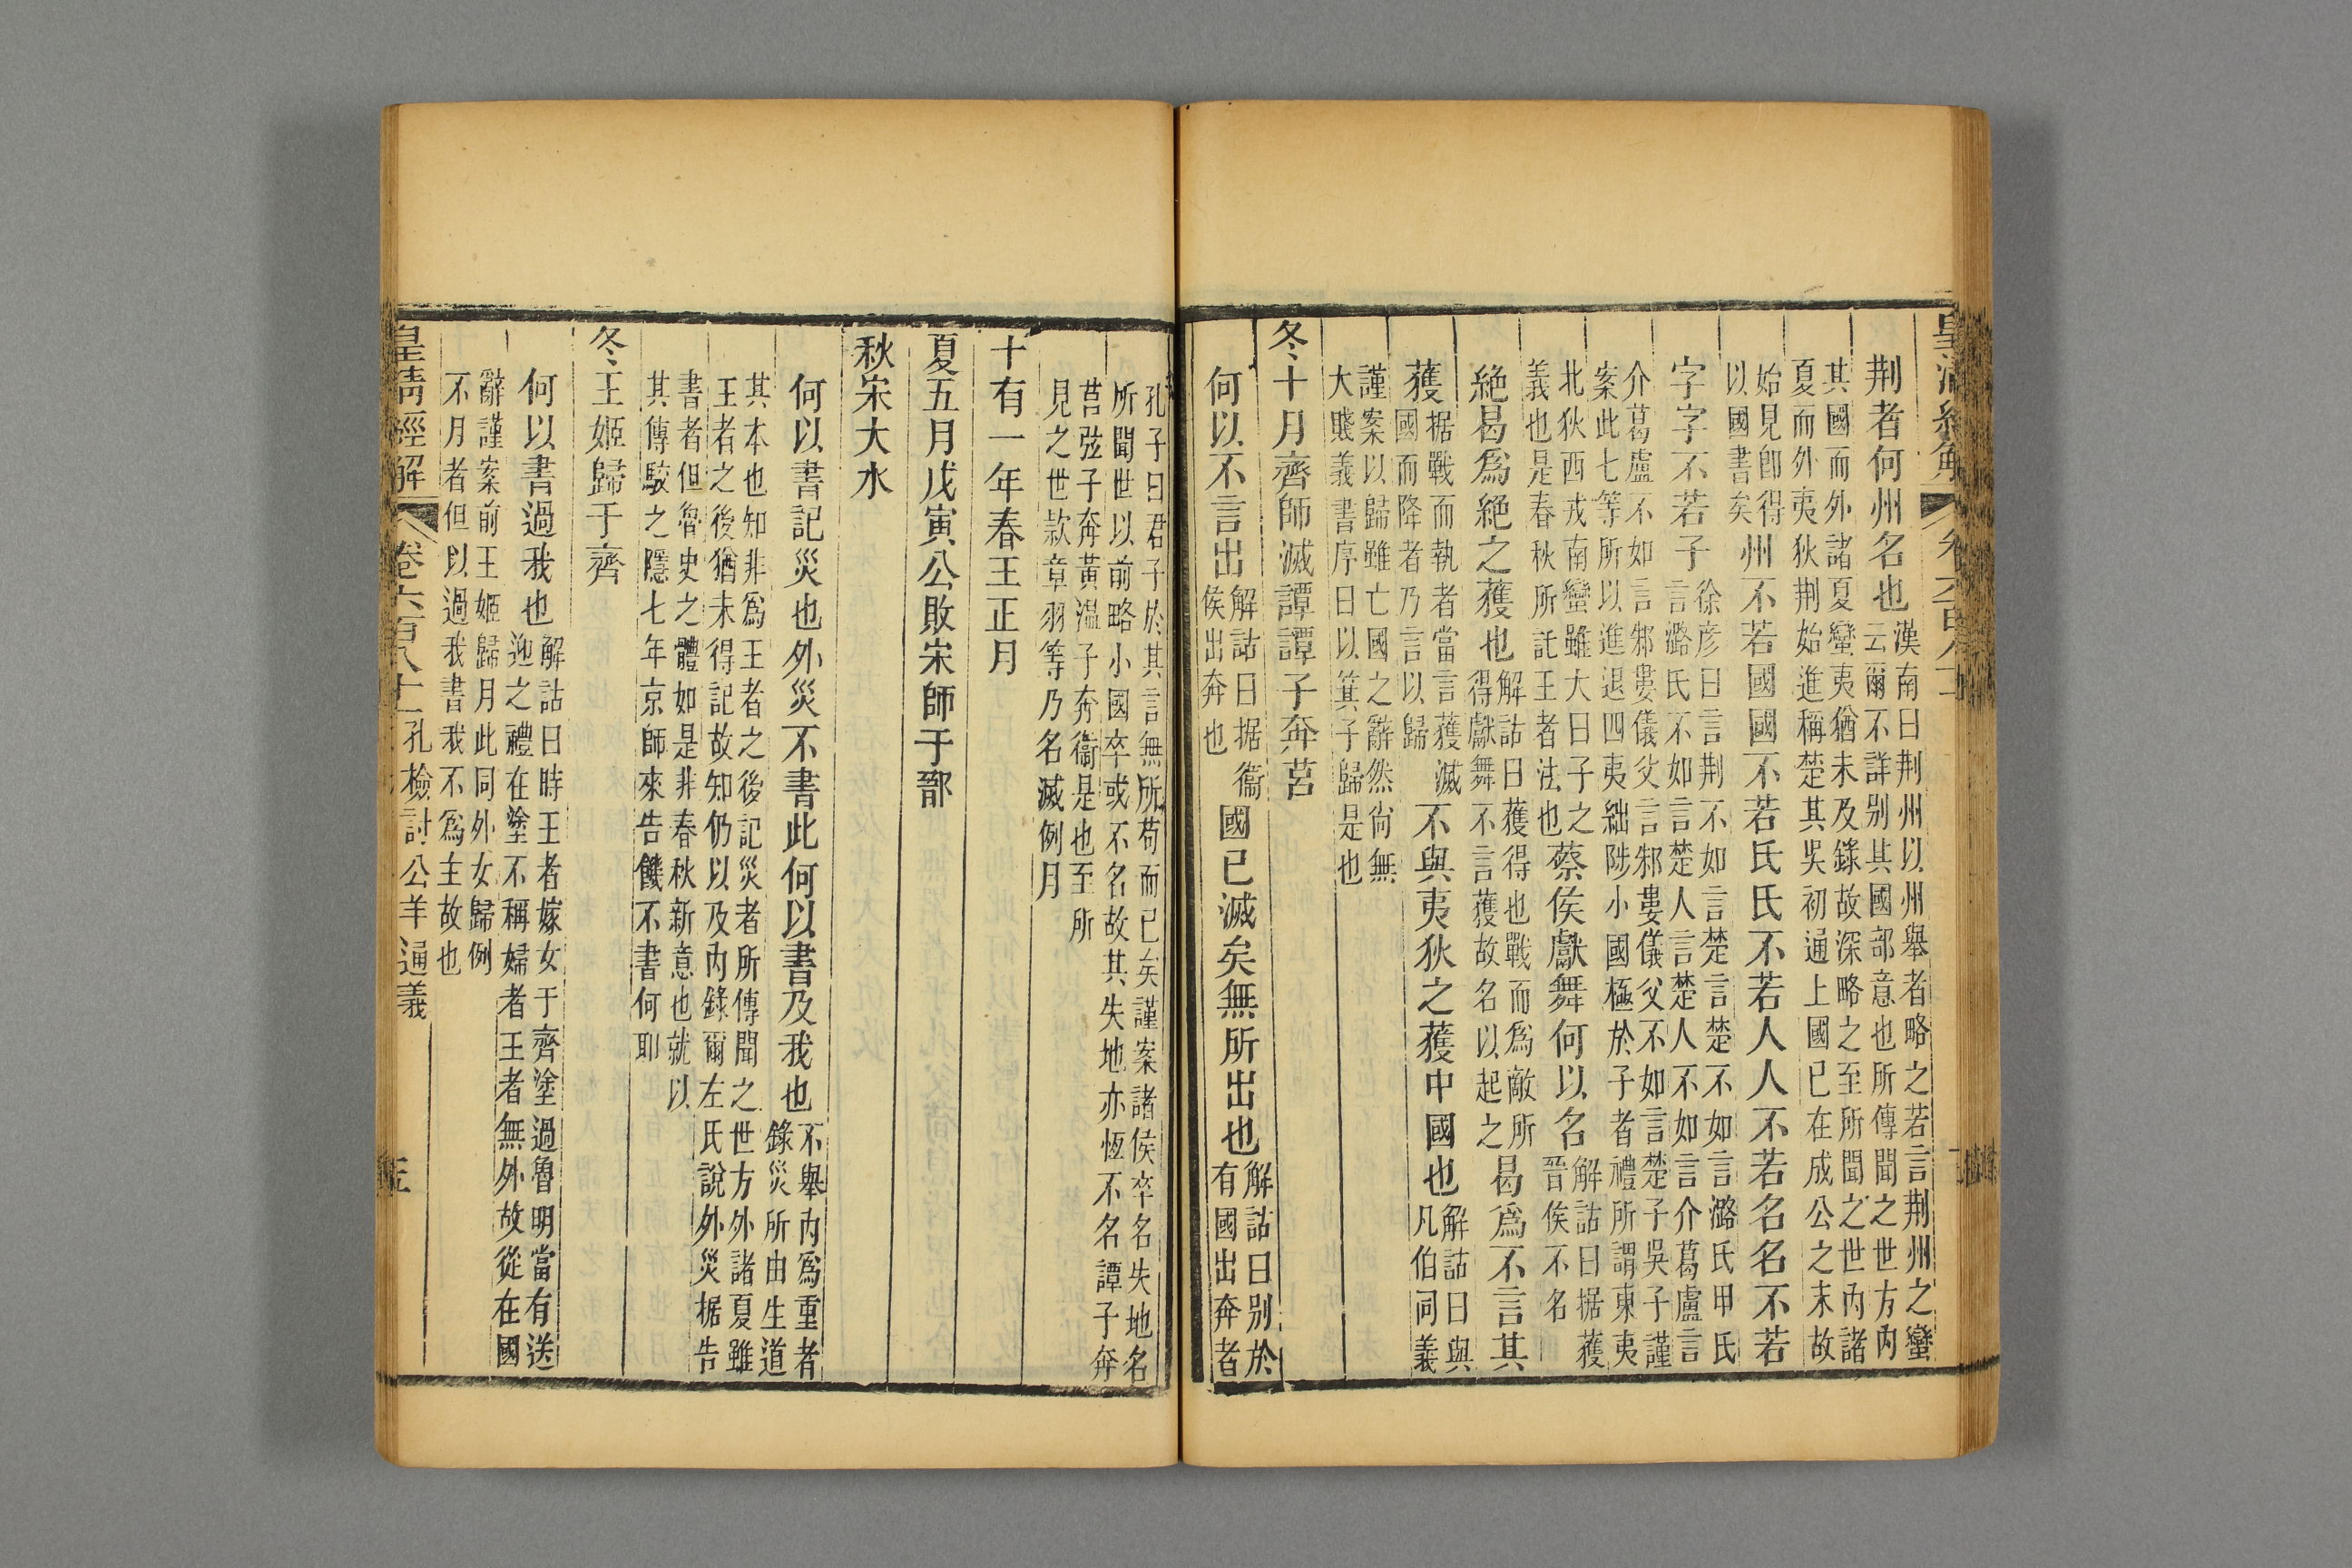 荆者何州名也漢南曰荆州以州舉者略之若言荆州之蠻云爾不詳别其國部意也所傳聞之世方內
其國而外諸夏蠻夷猶未及錄故深略之至所聞之世內諸夏而外夷狄荆始進稱楚其吳初通上國已在成公之末故
始見卽得以國書矣州不若國國不若氏氏不若人人不若名名不若
字字不若子徐彥曰言荆不如言楚言楚不如言潞氏甲氏言潞氏不如言楚人言楚人不如言介葛盧言
介葛盧不如言邾婁儀父言邾婁儀父不如言楚子吳子謹案此七等所以進退四夷絀陟小國極於子者禮所謂東夷
北狄西戎南蠻雖大曰子之義也是春秋所託王者法也蔡侯獻舞何以名解詁曰据獲晉侯不名
絕曷爲絕之獲也解詁曰獲得也戰而爲敵所得獻舞不言獲故名以起之曷爲不言其
獲据戰而執者當言獲滅國而降者乃言以歸不與夷狄之獲中國也解詁曰與凡伯同義
謹案以歸雖亡國之辭然尙無大賤義書序曰以箕子歸是也
冬十月齊師滅譚譚子奔莒
何以不言出解詁曰据衞侯出奔也國已滅矣無所出也解詁曰别於有國出奔者
孔子曰君子於其言無所苟而已矣謹案諸侯卒名失地名所聞世以前略小國卒或不名故其失地亦恆不名譚子奔
莒弦子奔黃温子奔衞是也至所見之世款章羽等乃名滅例月
十有一年春王正月
夏五月戊寅公敗宋師于鄑
秋宋大水
何以書記災也外災不書此何以書及我也不舉內爲重者錄災所由生道
其本也知非爲王者之後記災者所傳聞之世方外諸夏雖王者之後猶未得記故知仍以及內錄爾左氏說外災据告
書者但魯史之體如是非春秋新意也就以其傳駮之隱七年京師來告饑不書何耶
冬王姬歸于齊
何以書過我也解詁曰時王者嫁女于齊塗過魯明當有送迎之禮在塗不稱婦者王者無外故從在國
辭謹案前王姬歸月此同外女歸例不月者但以過我書我不爲主故也
皇清經解 卷六百八十一 孔檢討公羊通義 五